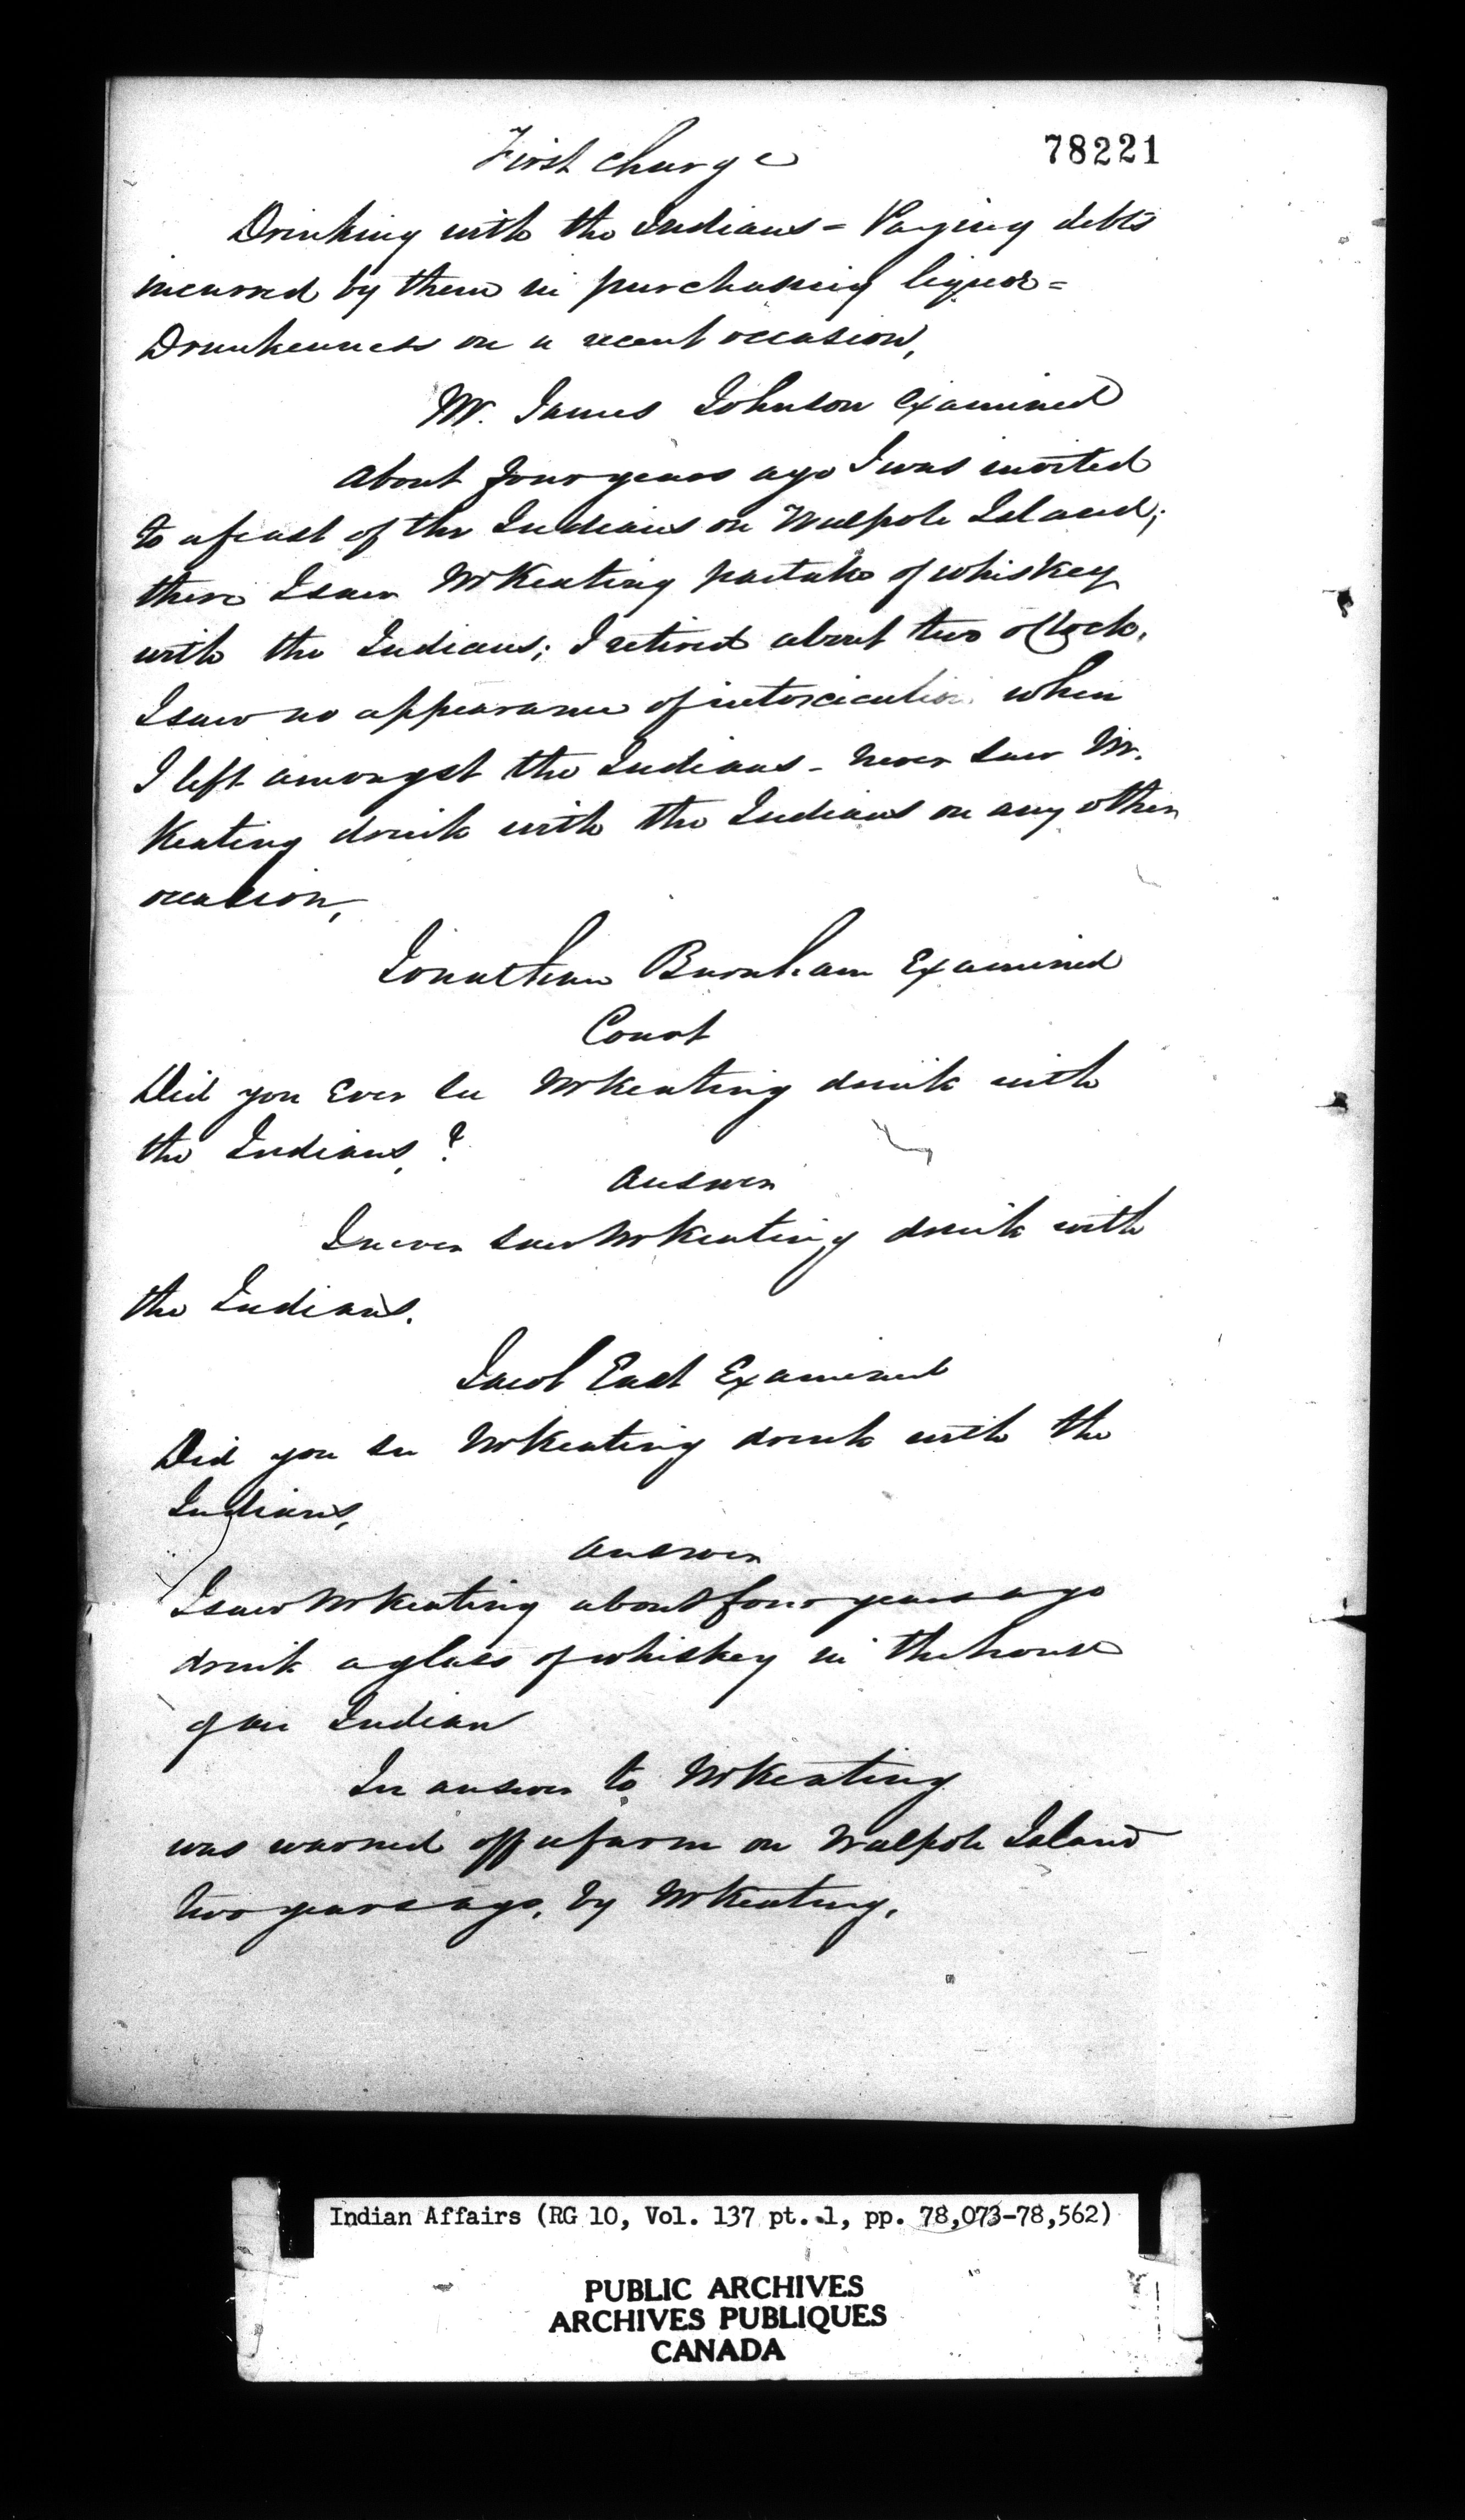 First charge 78221
Drinking with the Indians = Paying debts
incurred by them in purchasing liquor =
Drunkenness on a recent occasion,
Mr. James Johnson Examined
About four years ago I was invited
to a feast of the Indians on Walpole Island;
there I saw Mr Keating partake of whiskey
with the Indians; I retired about two oClock,
I saw no appearance of intoxication when
I left amongst the Indians - never saw Mr.
Keating drink with the Indians on any other
occasion,
Jonathan Burnham Examined
Court
Did you Ever see Mr Keating drink with
the Indians,?
Answer
I never saw Mr Keating drink with
the Indians.
Jacob East Examined
Did you see Mr Keating drink with the
Indians,
Answer
I saw Mr Keating about four years ago
drink a glass of whiskey in the house
of an Indian
In answer to Mr Keating
was warned off a farm on Walpole Island
two years ago, by Mr Keating,
Indian Affairs (RG 10, Vol. 137 pt. 1, pp. 78,073-78,562)
PUBLIC ARCHIVES
ARCHIVES PUBLIQUES
CANADA